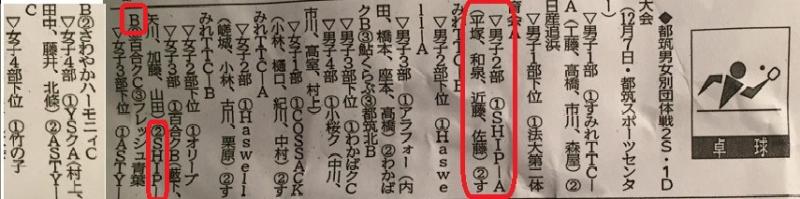 卓球
◆都筑男女別団体戦2S・1D
大会
(12月7日・都筑スポーツセンタ
ー)
▽男子1部 ①すみれTTC―
A(工藤、高橋、市川、森屋)②
日産追浜
▽男子1部下位 ①法大第二体
育会A
▽男子2部 ①SHIP―A
(平塚、和泉、近藤、佐藤)②す
みれTTC―B
▽男子2部下位 ①Haswe
ll―A
▽男子3部 ①アラフォー(内
田、橋本、座本、高橋)②わかば
クB③鮎くらぶ③都筑北B
▽男子3部下位 ①わかばクC
▽男子4部 ①小桜ク(中川、
市川、高室、村上)
▽女子1部 ①COSSACK
(小林、樋口、紀川、中村)②す
みれTTC―A
▽女子2部 ①Haswell
(嵯城、小林、古川、栗原)②す
みれTTC―B
▽女子2部下位 ①オリーブ
▽女子3部 ①百合クB(藪下、
天川、加藤、山田)②SHIP―
B③百合クC③フレッシュ青葉
▽女子3部下位 ①ASTY―
B②さわやかハーモニィC
▽女子4部 ①YSクA(村上、
田中、藤井、北條)②ASTY―
C
▽女子4部下位 ①竹の子